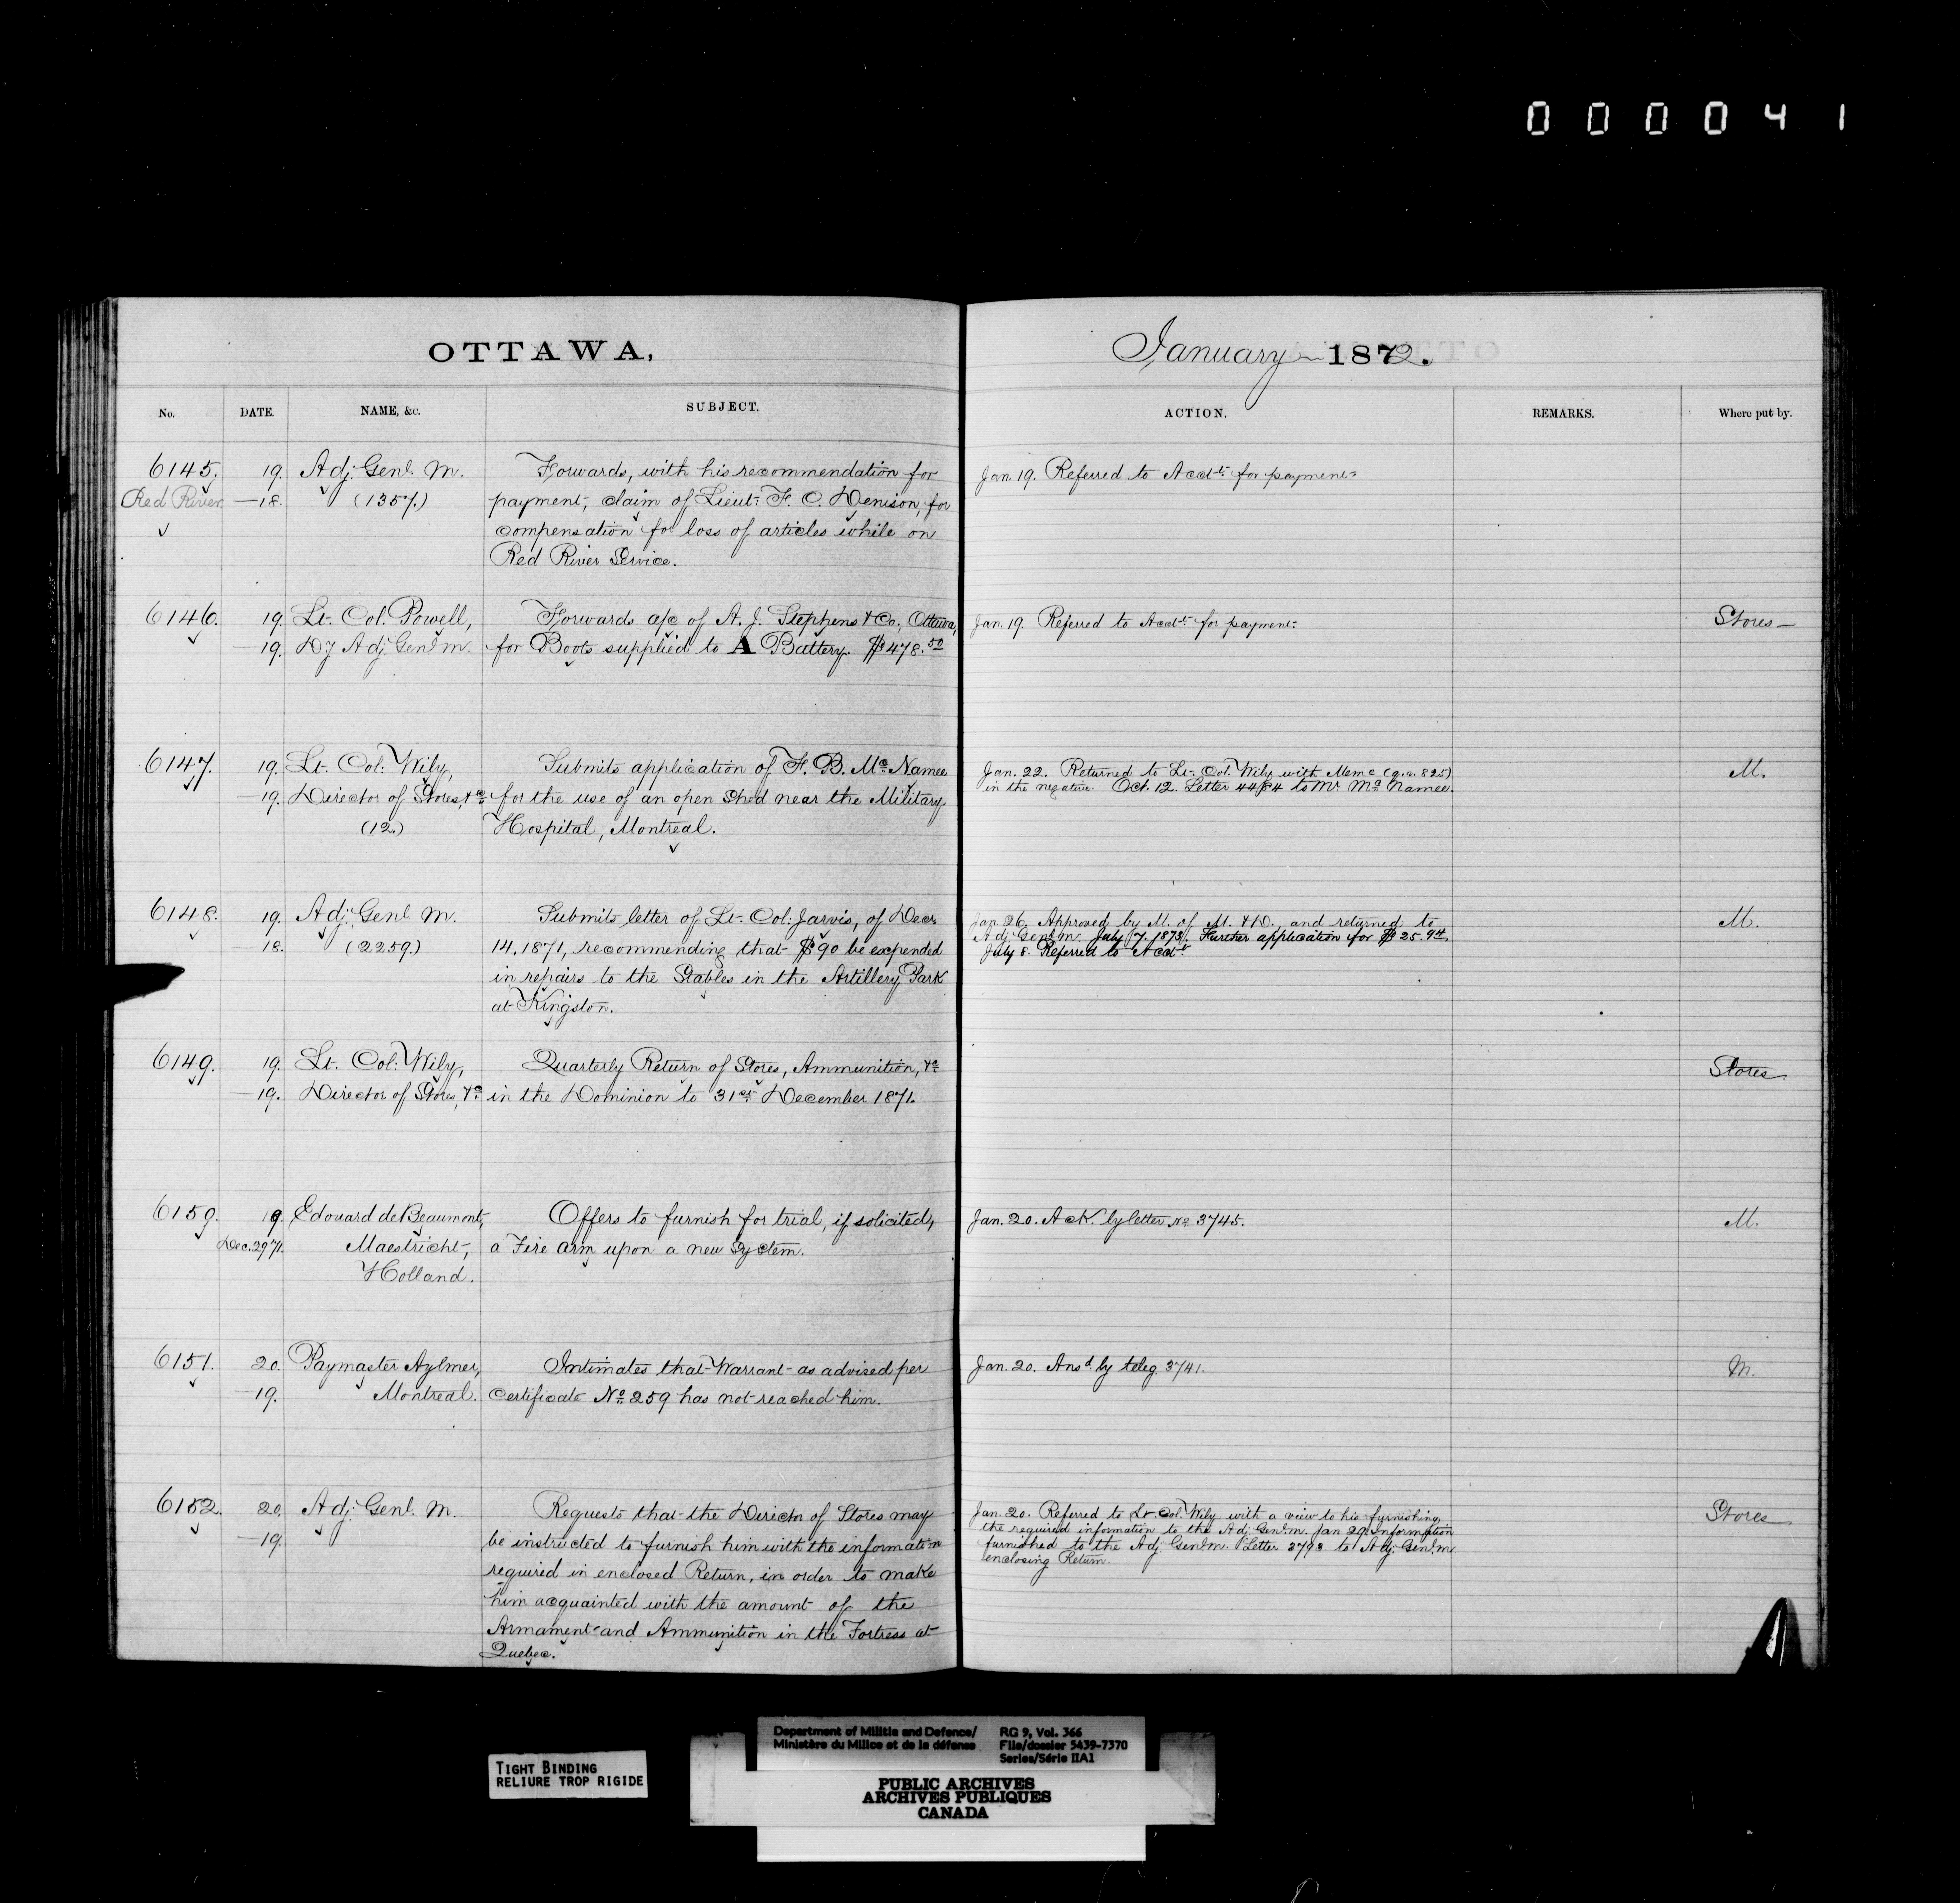 000041
OTTAWA,
January 1872.
No. DATE. NAME, &c. SUBJECT. ACTION. REMARKS. Where put by.
6145. 19. Adj. Genl. M. Forwards, with his recommendation for
Red River —18. (1357.) payment, claim of Lieut. F. C. Denison, for
compensation for loss of articles while on
Red River Service.
Jan. 19. Referred to Acct. for payment.
6146. 19. Lt. Col. Powell, Forwards a/c of A. J. Stephens & Co., Ottawa,
—19. Dy Adj. Genl. M. for Boots supplied to A Battery. $478.50
Jan. 19 Referred to Acct. for payment. Stores—
6147. 19. Lt. Col. Wily, Submits application of F. B. McNamee
—19. Director of Stores, &c. for the use of an open Shed near the Military
(12.) Hospital, Montreal.
Jan. 22. Returned to Lt. Col. Wily with Memo (q.v. 825) M.
in the negative. Oct. 12. Letter 4484 to Mr McNamee.
6148. 19. Adj. Genl. M. Submits letter of Lt. Col. Jarvis, of Decr.
—18. (2259.) 14, 1871, recommending that $90 be expended
in repairs to the Stables in the Artillery Park
at Kingston.
Jan. 26. Approved by M. of M. & D. and returned to M.
Adj. Genl. M. July 7. 1873. Further application for $25.94
July 8. Referred to Acct.
6149. 19. Lt. Col. Wily, Quarterly Return of Stores, Ammunition, &c
—19. Director of Stores, &c. in the Dominion to 31st December 1871.
Stores.
6150. 19. Edouard de Beaumont, Offers to furnish for trial, if solicited,
Dec. 29 71. Maestricht, a Fire arm upon a new System.
Holland.
Jan. 20. Ack. by letter No. 3745. M.
6151. 20. Paymaster Aylmer, Intimates that Warrant as advised per
—19. Montreal. Certificate No. 259 has not reached him.
Jan. 20. Ansd. by teleg. 3741. M.
6152. 20. Adj. Genl. M. Requests that the Director of Stores may
—19. be instructed to furnish him with the information
required in enclosed Return, in order to make
him acquainted with the amount of the
Armament and Ammunition in the Fortress at
Quebec.
Jan. 20. Referred to Lt. Col. Wily with a view to his furnishing Stores
the required information to the Adj. Genl. M. Jan 29. Information
furnished to the Adj. Genl. M. Letter 3793 to Adj. Genl. M.
enclosing Return.
TIGHT BINDING
RELIURE TROP RIGIDE
Department of Militia and Defence/
Ministère du Milice et de la défense
RG 9, Vol. 366
File/dossier 5439-7370
Series/Série IIA1
PUBLIC ARCHIVES
ARCHIVES PUBLIQUES
CANADA